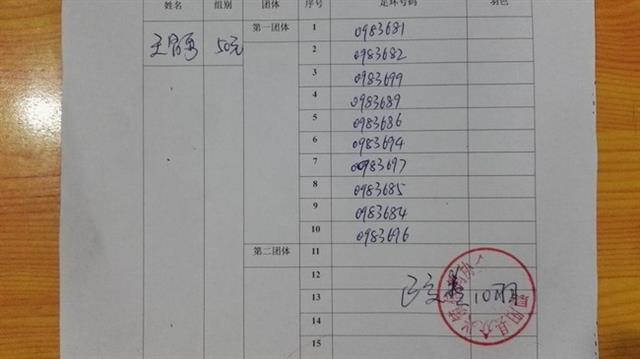 姓名 组别 团体 序号 足环号码 羽色
50元 第一团体 1 0983681
2 0983682
3 0983699
4 0983689
5 0983686
6 0983694
7 0983697
8 0983685
9 0983684
10 0983696
第二团体 11
12
13 10羽
14
15